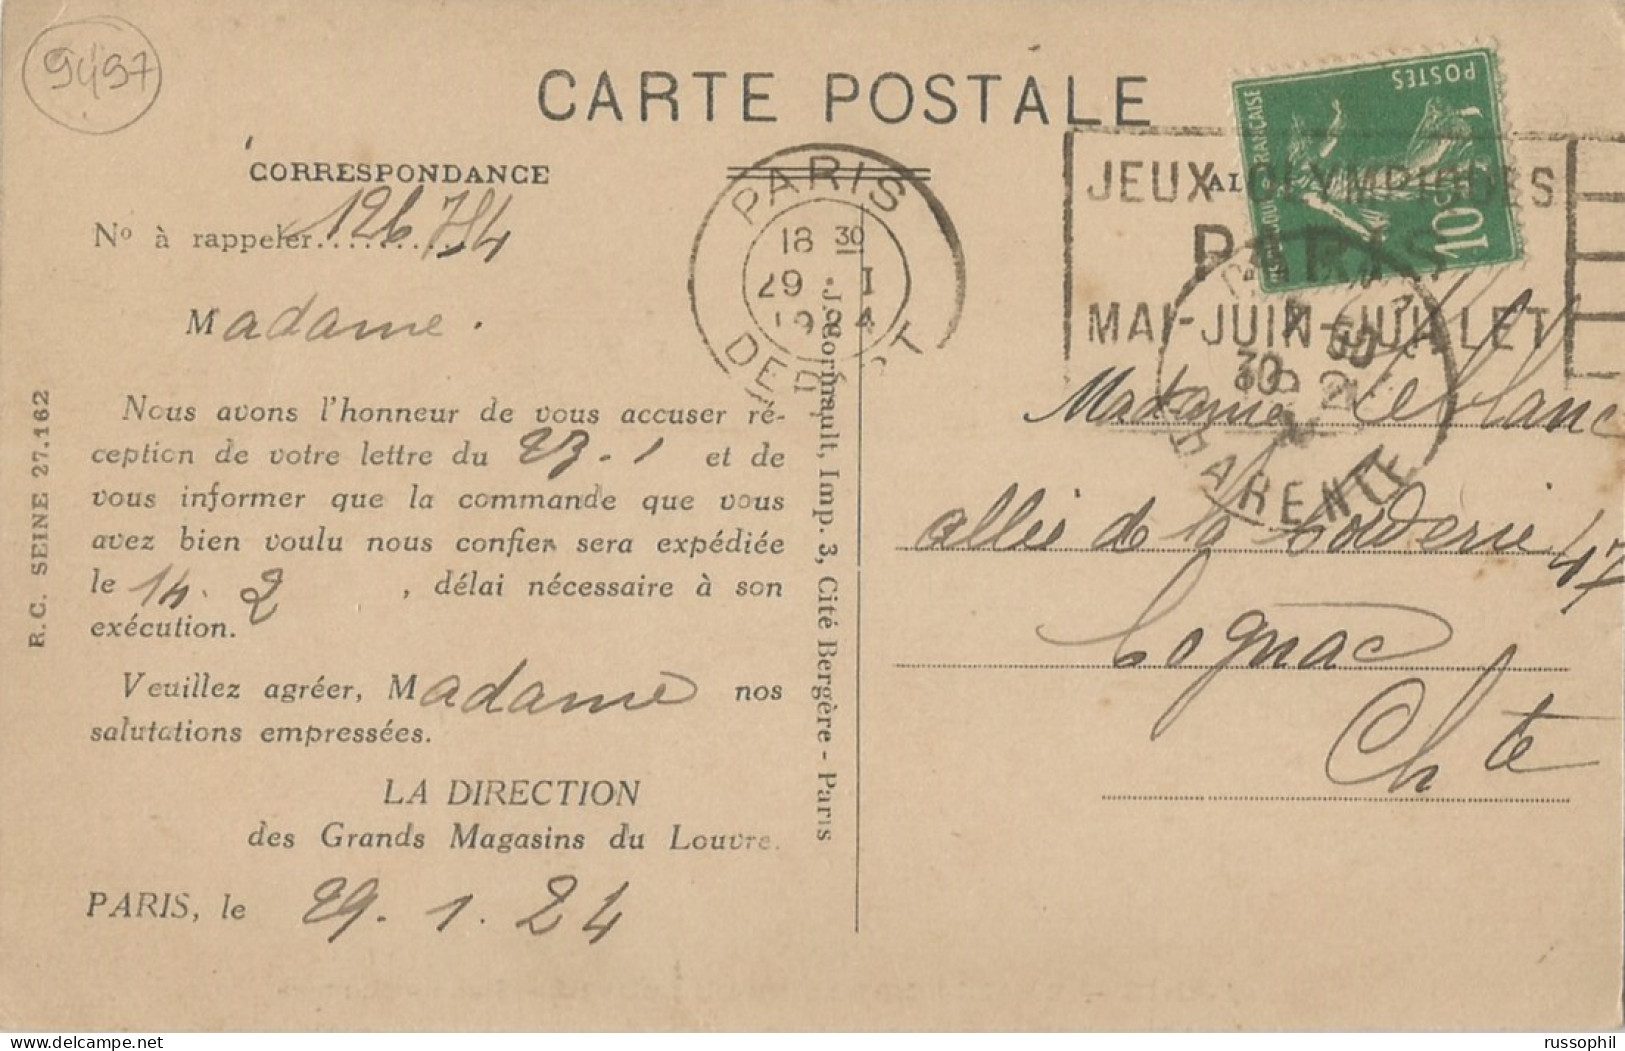 9497
CARTE POSTALE
CORRESPONDANCE
Nº à rappeler..........
126
Madame.
Nous avons l'honneur de vous accuser ré-
ception de votre lettre du 23.1 et de
vous informer que la commande que vous
avez bien voulu nous confier sera expédiée
le 14. 2 , délai nécessaire à son
exécution.
Veuillez agréer, Madame nos
salutations empressées.
LA DIRECTION
des Grands Magasins du Louvre.
PARIS, le 29. 1. 24
R.C. SEINE 27.162
J. Cormault, Imp. 3, Cité Bergère - Paris
PARIS
18 30
29 I
DEPART
POSTES
10
JEUX OLYMPIQUES
PARIS
MAI-JUIN-JUILLET
30
Madame Leblanc
allée de la Corderie 47
Cognac
Chte
www.delcampe.net
russophil